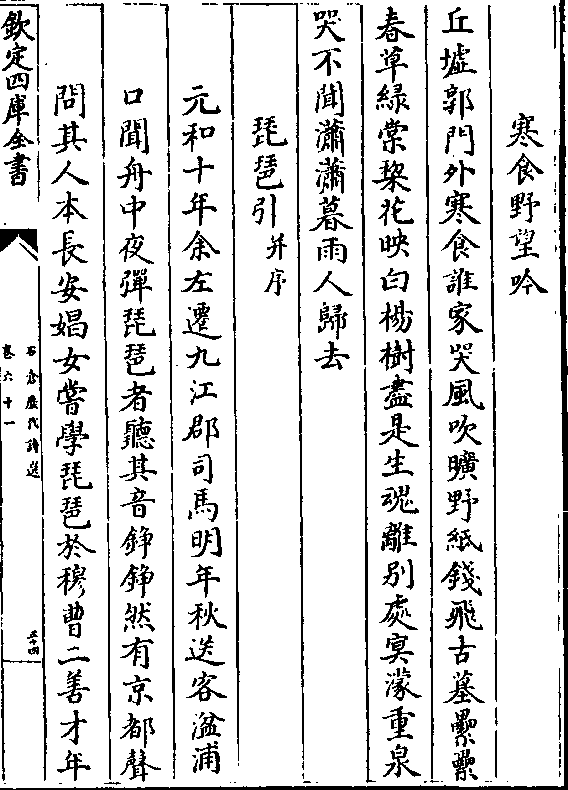 寒食野望吟
丘墟郭門外寒食誰家哭風吹曠野紙錢飛古墓纍纍
春草綠棠棃花映白楊樹盡是生魂離別處冥濛重泉
哭不聞瀟瀟暮雨人歸去
琵琶引并序
元和十年余左遷九江郡司馬明年秋送客湓浦
口聞舟中夜彈琵琶者聽其音錚錚然有京都聲
問其人本長安娼女嘗學琵琶於穆曹二善才年
欽定四庫全書
石倉歷代詩選
卷六十一
三十四